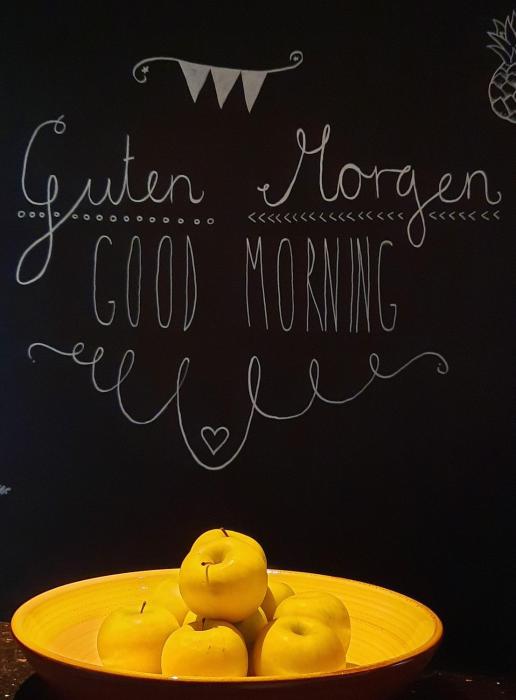 Guten Morgen
GOOD MORNING